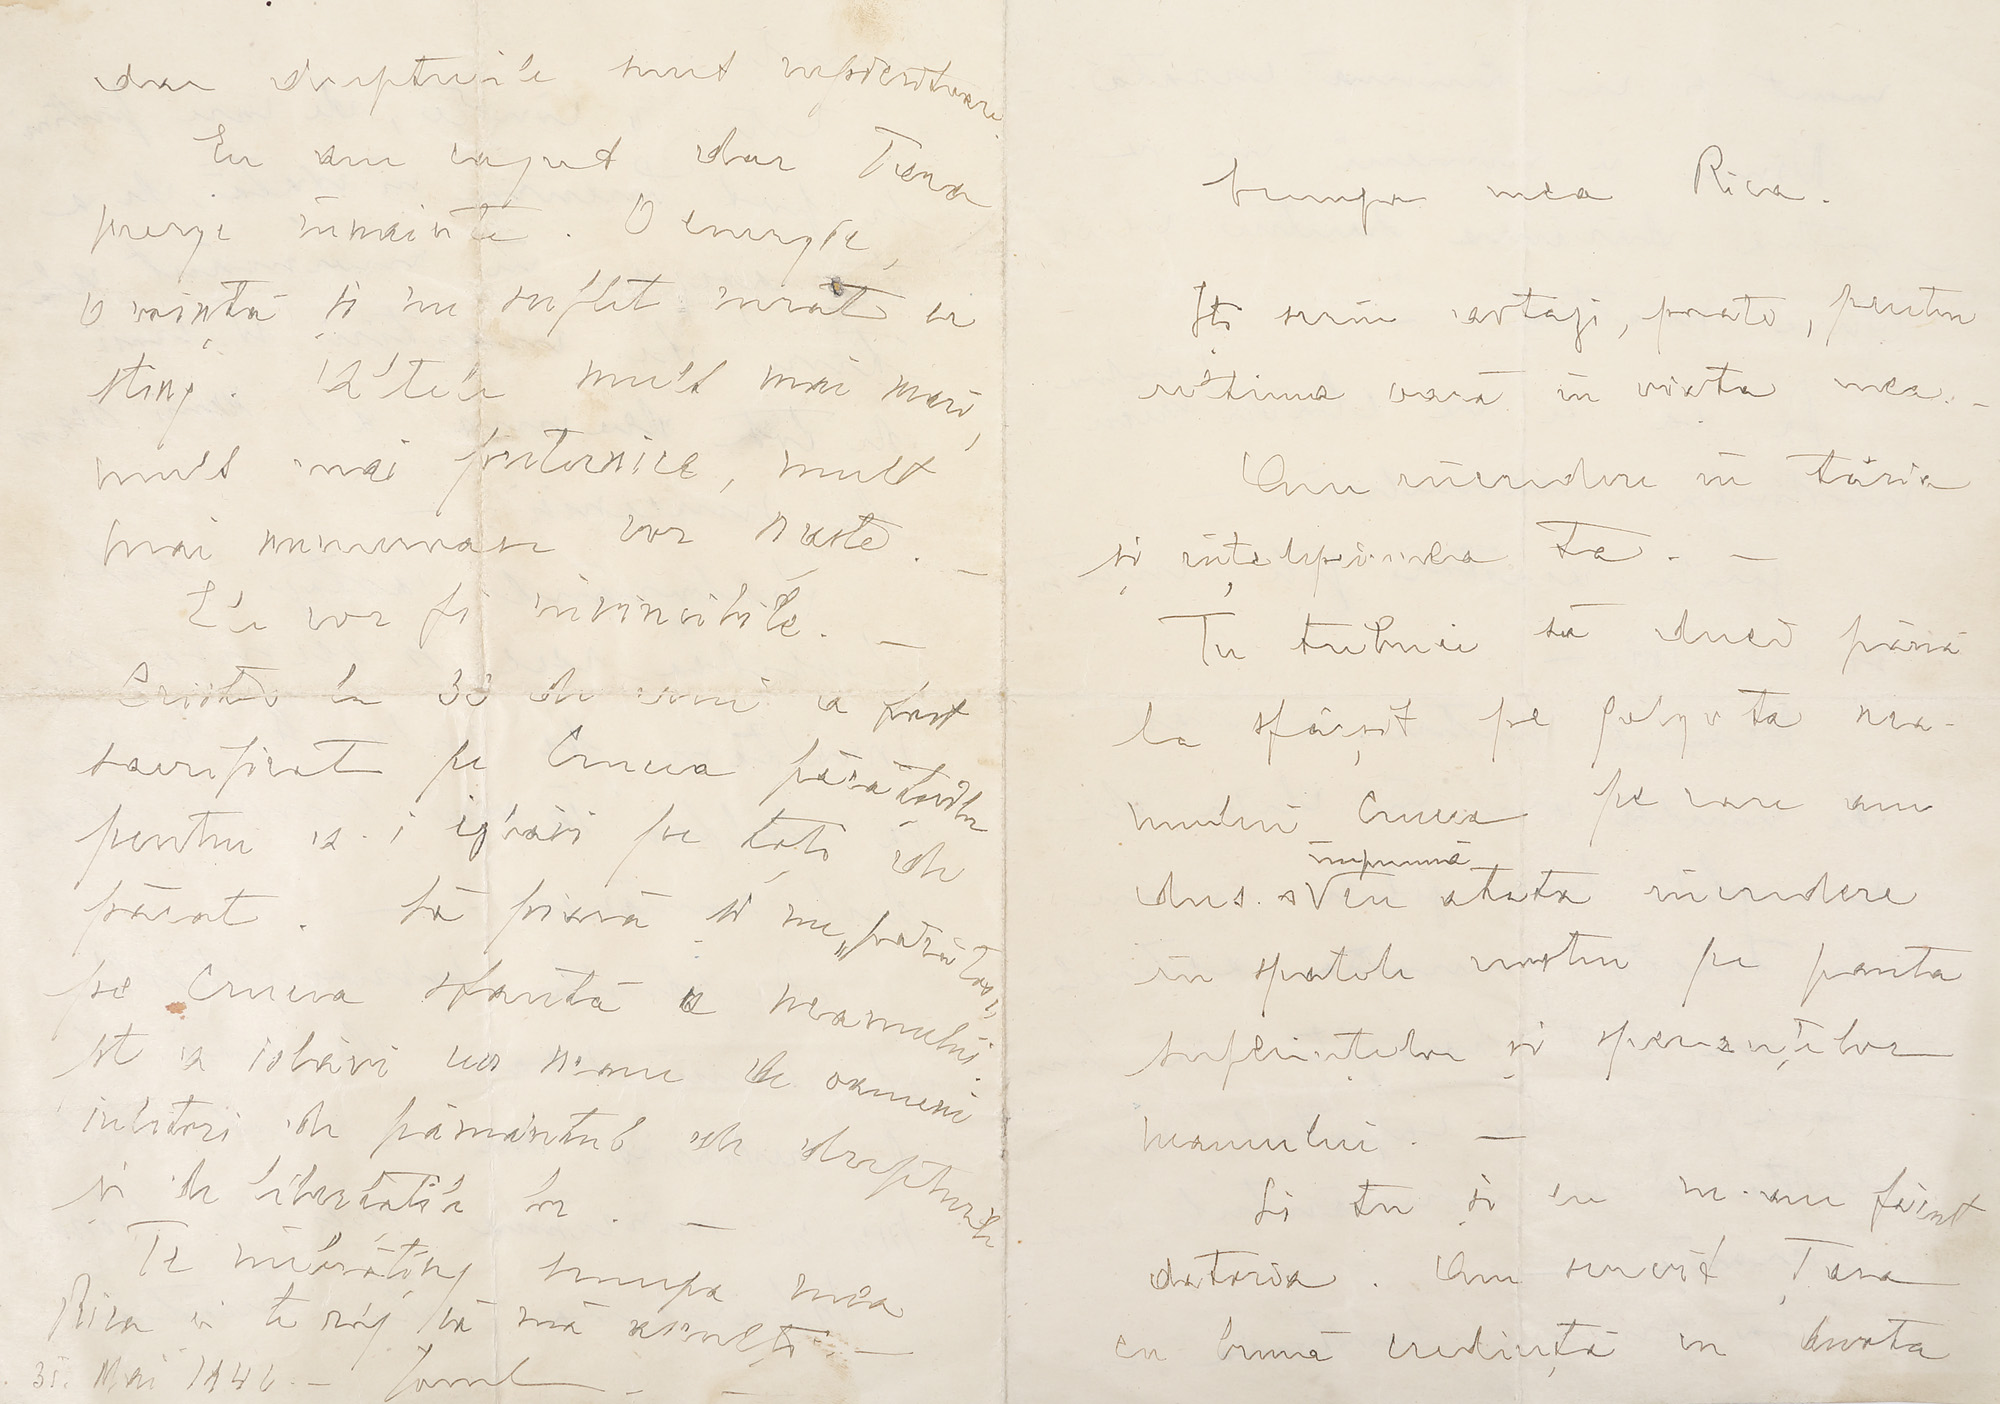 Scumpa mea Rica.
Îți scriu astăzi, poate, pentru
ultima oară în viața mea. -
Am încredere în tăria
și înțelepciunea ta. -
Tu trebuie să duci până
la sfârșit pe Golgota nea-
mului Crucea pe care am
dus-o împreună
Ven atata incredere
in spatele nostru pe panta
suferințelor și speranțelor
neamului. -
Si tu și eu ne-am făcut
datoria. Am servit Țara
cu bună credință in lupta
dar drepturile sunt
Eu am cazut dar Tara
merge înainte. O energie,
O voință și un suflet curat se
sting. Altele mult mai mari,
mult mai puternice, mult
mai numeroase vor naște. -
Ele vor fi invincibile. -
Cristos la 33 de ani a fost
sacrificat pe Crucea păcătoșilor
pentru a-i izbăvi pe toți de
păcat. Să piară și un „păcătos"
pe Crucea sfantă a neamului
pt a isbăvi un neam de oameni
iubitori de pământul de drepturile
și de libertatile lor. -
Te îmbrățișez scumpa mea
Rica și te rog să mă asculți. -
31. Mai 1946. -